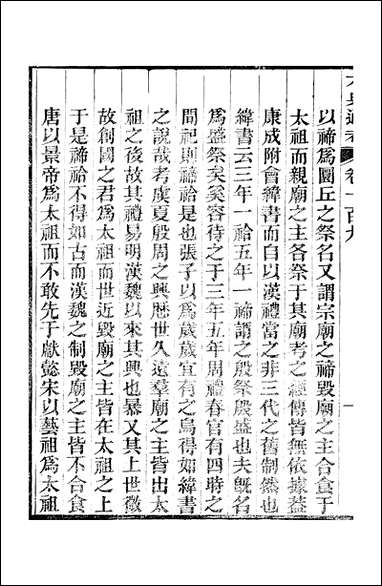 以禘爲圜丘之祭名又謂宗廟之禘毀廟之主合食于
太祖而親廟之主各祭于其廟考之經傳皆無依據葢
康成附會緯書而自以漢禮當之非三代之舊制然也
緯書云三年一祫五年一禘謂之殷祭殷盛也夫旣名
爲盛祭矣奚容待之于三年五年周禮春官有四時之
間祀則禘祫是也張子以爲歲歲宜有之烏得如緯書
之說哉考虞夏殷周之興歷世久遠羣廟之主皆出太
祖之後故其禮易明漢魏以來其興也暴又其上世微
故創國之君爲太祖而世近毀廟之主皆在太祖之上
于是禘祫不得如古而漢魏之制毀廟之主皆不合食
唐以景帝爲太祖而不敢先于獻懿宋以藝祖爲太祖